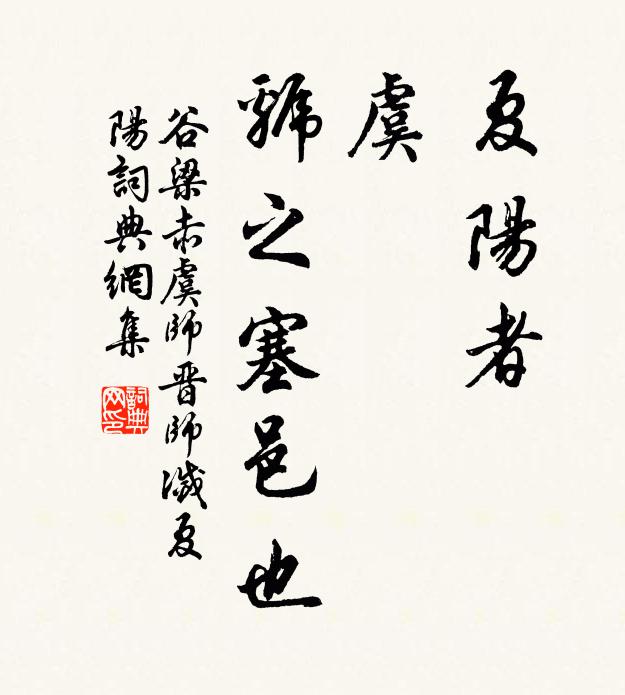 夏陽者
虞
虢之塞邑也
谷梁赤虞師晋師滅夏
陽詞典網集
詞典
网印